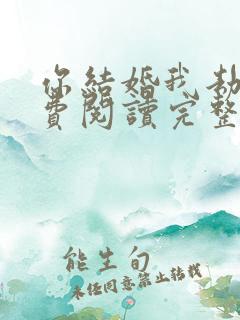 你結婚我劫
費閱讀完整
能生旬
未經同意禁止轉載